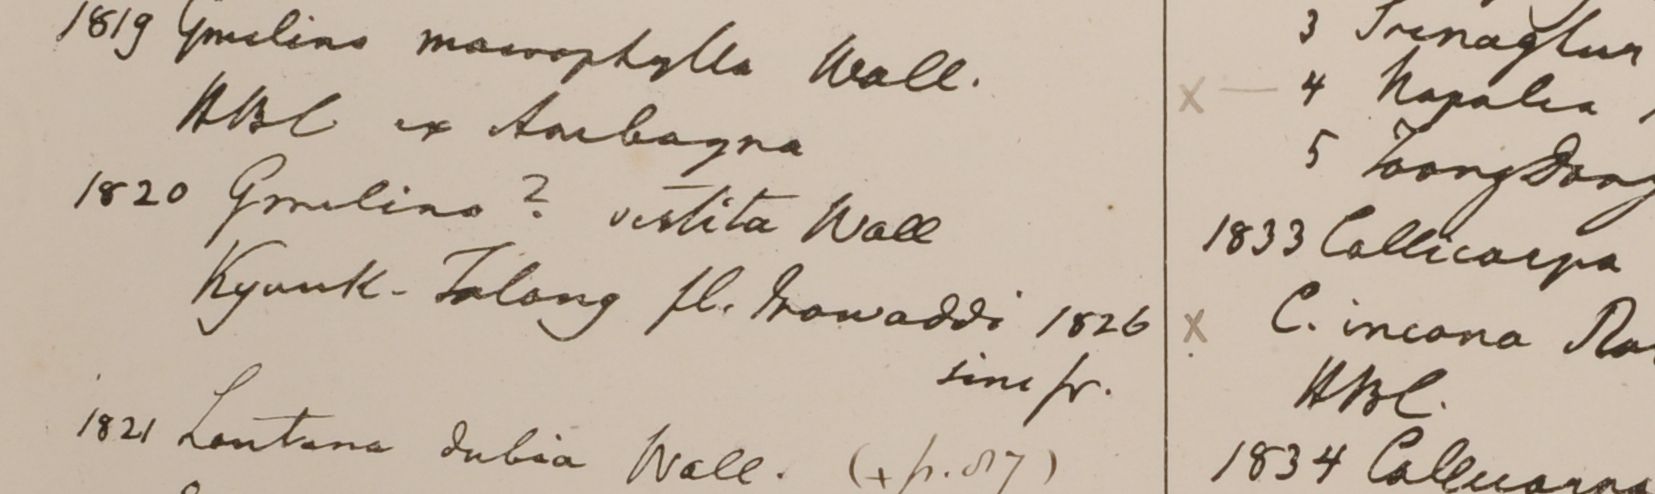 1819 Gmelina macrophylla Wall.
HBC ex Amboyna
1820 Gmelina? vestita Wall
Kyouk-Talong fl. Irawaddi 1826
sine fr.
1821 Lantana dubia Wall. (+ p. 87)
3
X — 4 Napalia
5 Toong Dong
1833 Callicarpa
X C. incana
HBC.
1834 Callicarpa